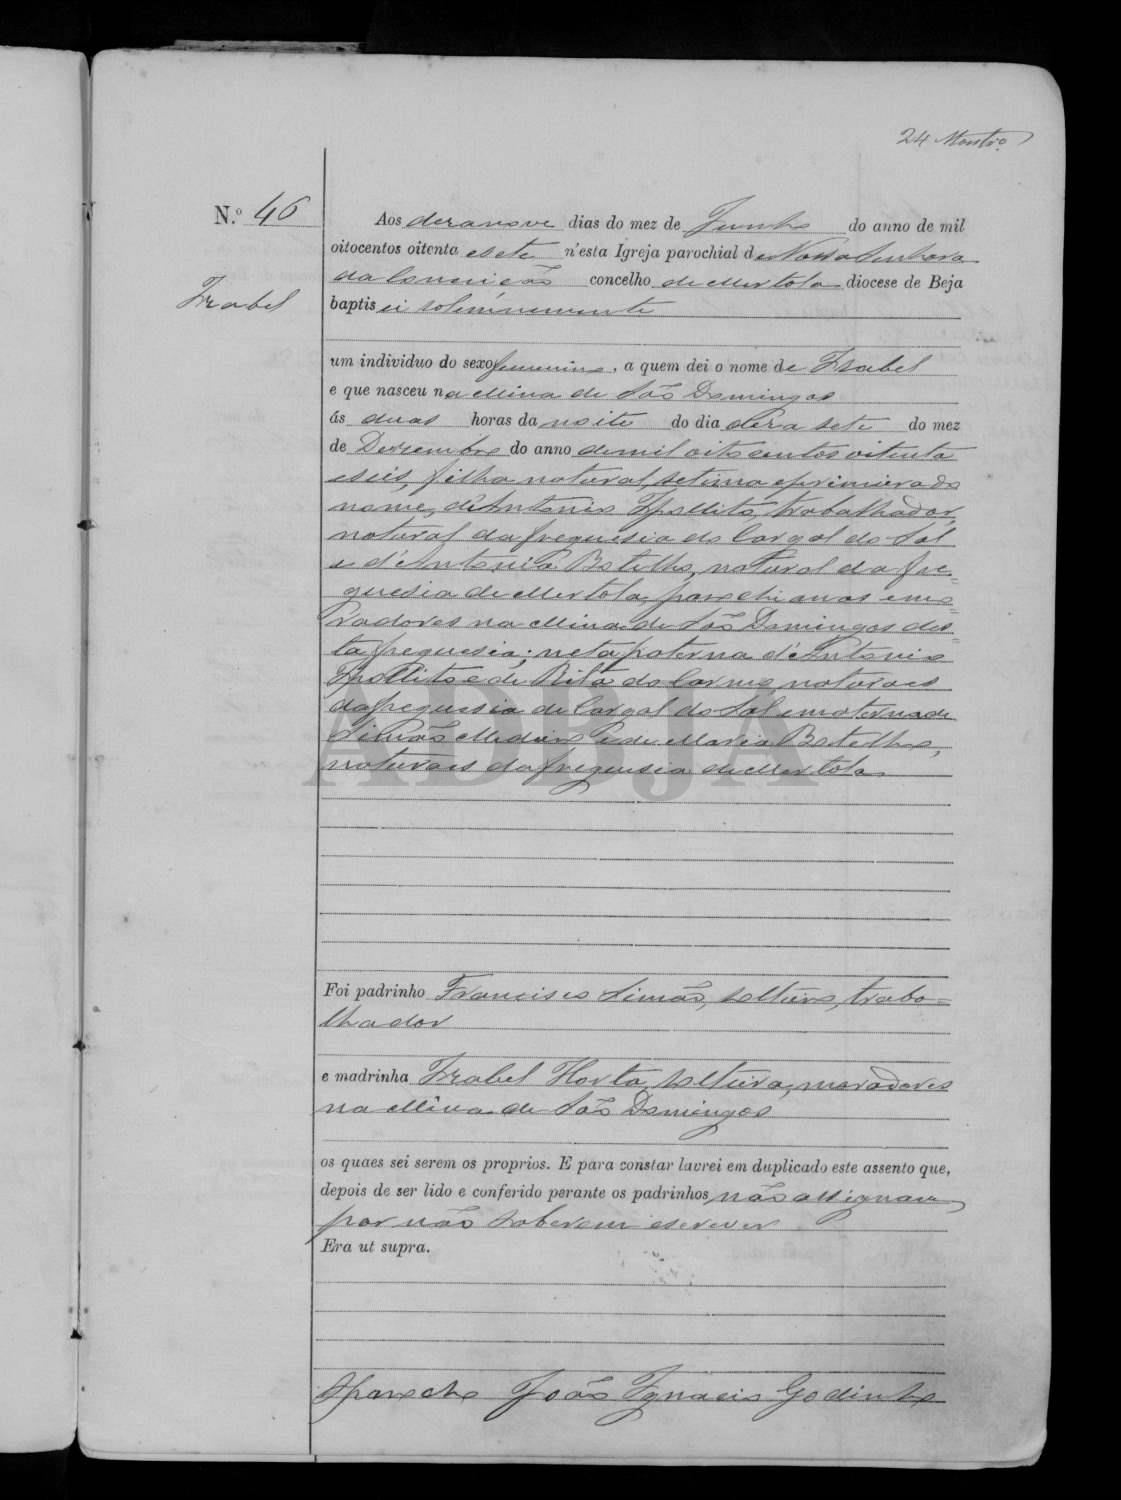 24 Montr.o
N.o 46
Izabel
Aos dezanove dias do mez de Junho do anno de mil
oitocentos oitenta esete n'esta Igreja parochial de Nossa Senhora
da Conceição concelho de Mertola diocese de Beja
baptisei solemnemente
um individuo do sexo femenino, a quem dei o nome de Izabel
e que nasceu na Mina de São Domingos
ás duas horas da noite do dia deza sete do mez
de Dezembro do anno demil oito centos oitenta
eseis, filha natural, setima eprimeira do
nome, d'Antonio Ipollito, trabalhador,
natural da freguesia do Cargal do Sal
e d'Antonia Botelho, natural da fre=
guesia de Mertola, parochianos emo=
radores na Mina de São Domingos des=
ta freguesia; neta paterna d'Antonio
Ipollito e de Rita do Carmo, naturaes
dafreguesia de Cargal do Sal ematerna de
Simão Medeiro e de Maria Botelho,
naturaes da freguesia de Mertola
ADBJA
Foi padrinho Francisco Simão, solteiro, traba=
lhador
e madrinha Izabel Horta, solteira, moradores
na Mina de São Domingos
os quaes sei serem os proprios. E para constar lavrei em duplicado este assento que,
depois de ser lido e conferido perante os padrinhos não assignam
por não saberem escrever
Era ut supra.
Oparocho João Ignacio Godinho